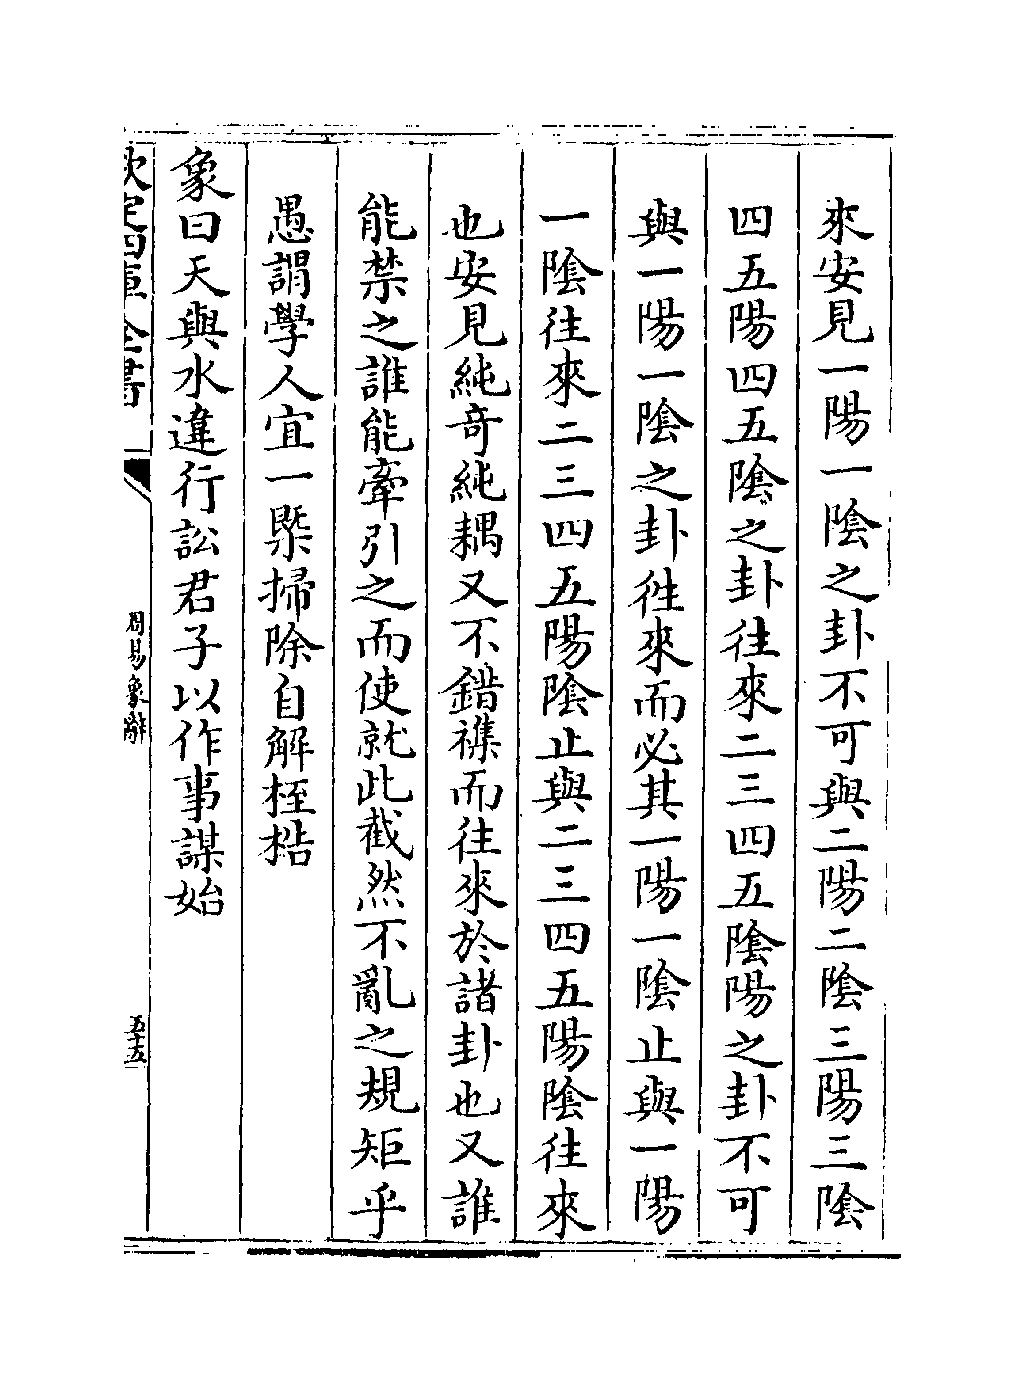 來安見一陽一陰之卦不可與二陽二陰三陽三陰
四五陽四五陰之卦往來二三四五陰陽之卦不可
與一陽一陰之卦徃來而必其一陽一陰止與一陽
一陰往來二三四五陽陰止與二三四五陽陰往來
也安見純竒純耦又不錯襍而往來於諸卦也又誰
能禁之誰能牽引之而使就此截然不亂之規矩乎
愚謂學人宜一槩掃除自解桎梏
象曰天與水違行訟君子以作事謀始
欽定四庫全書
周易象辭
五十五